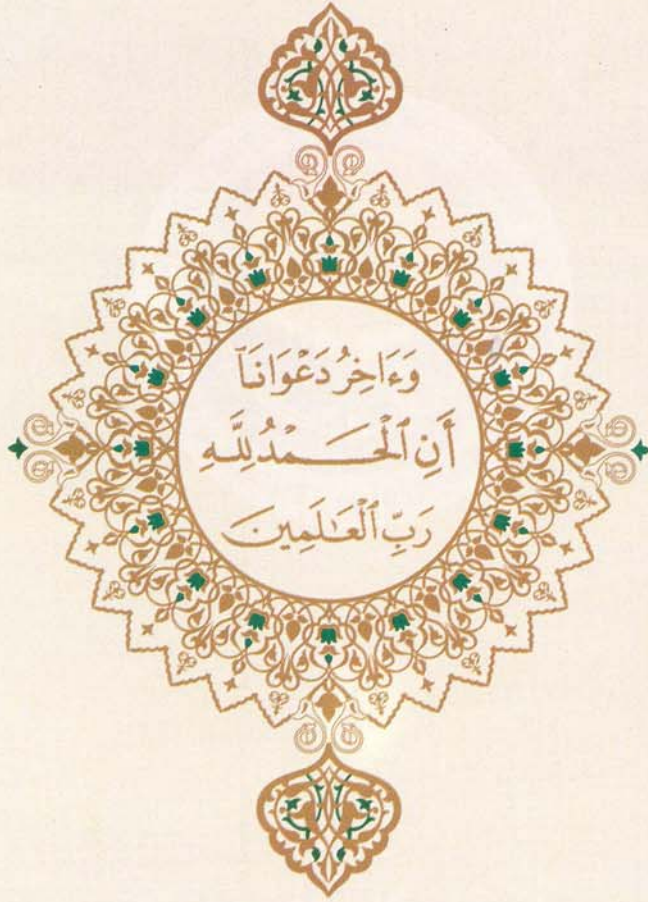 وَءَاخِرُ دَعْوَانَآ
أَنِ ٱلْحَمْدُ لِلَّهِ
رَبِّ ٱلْعَٰلَمِينَ